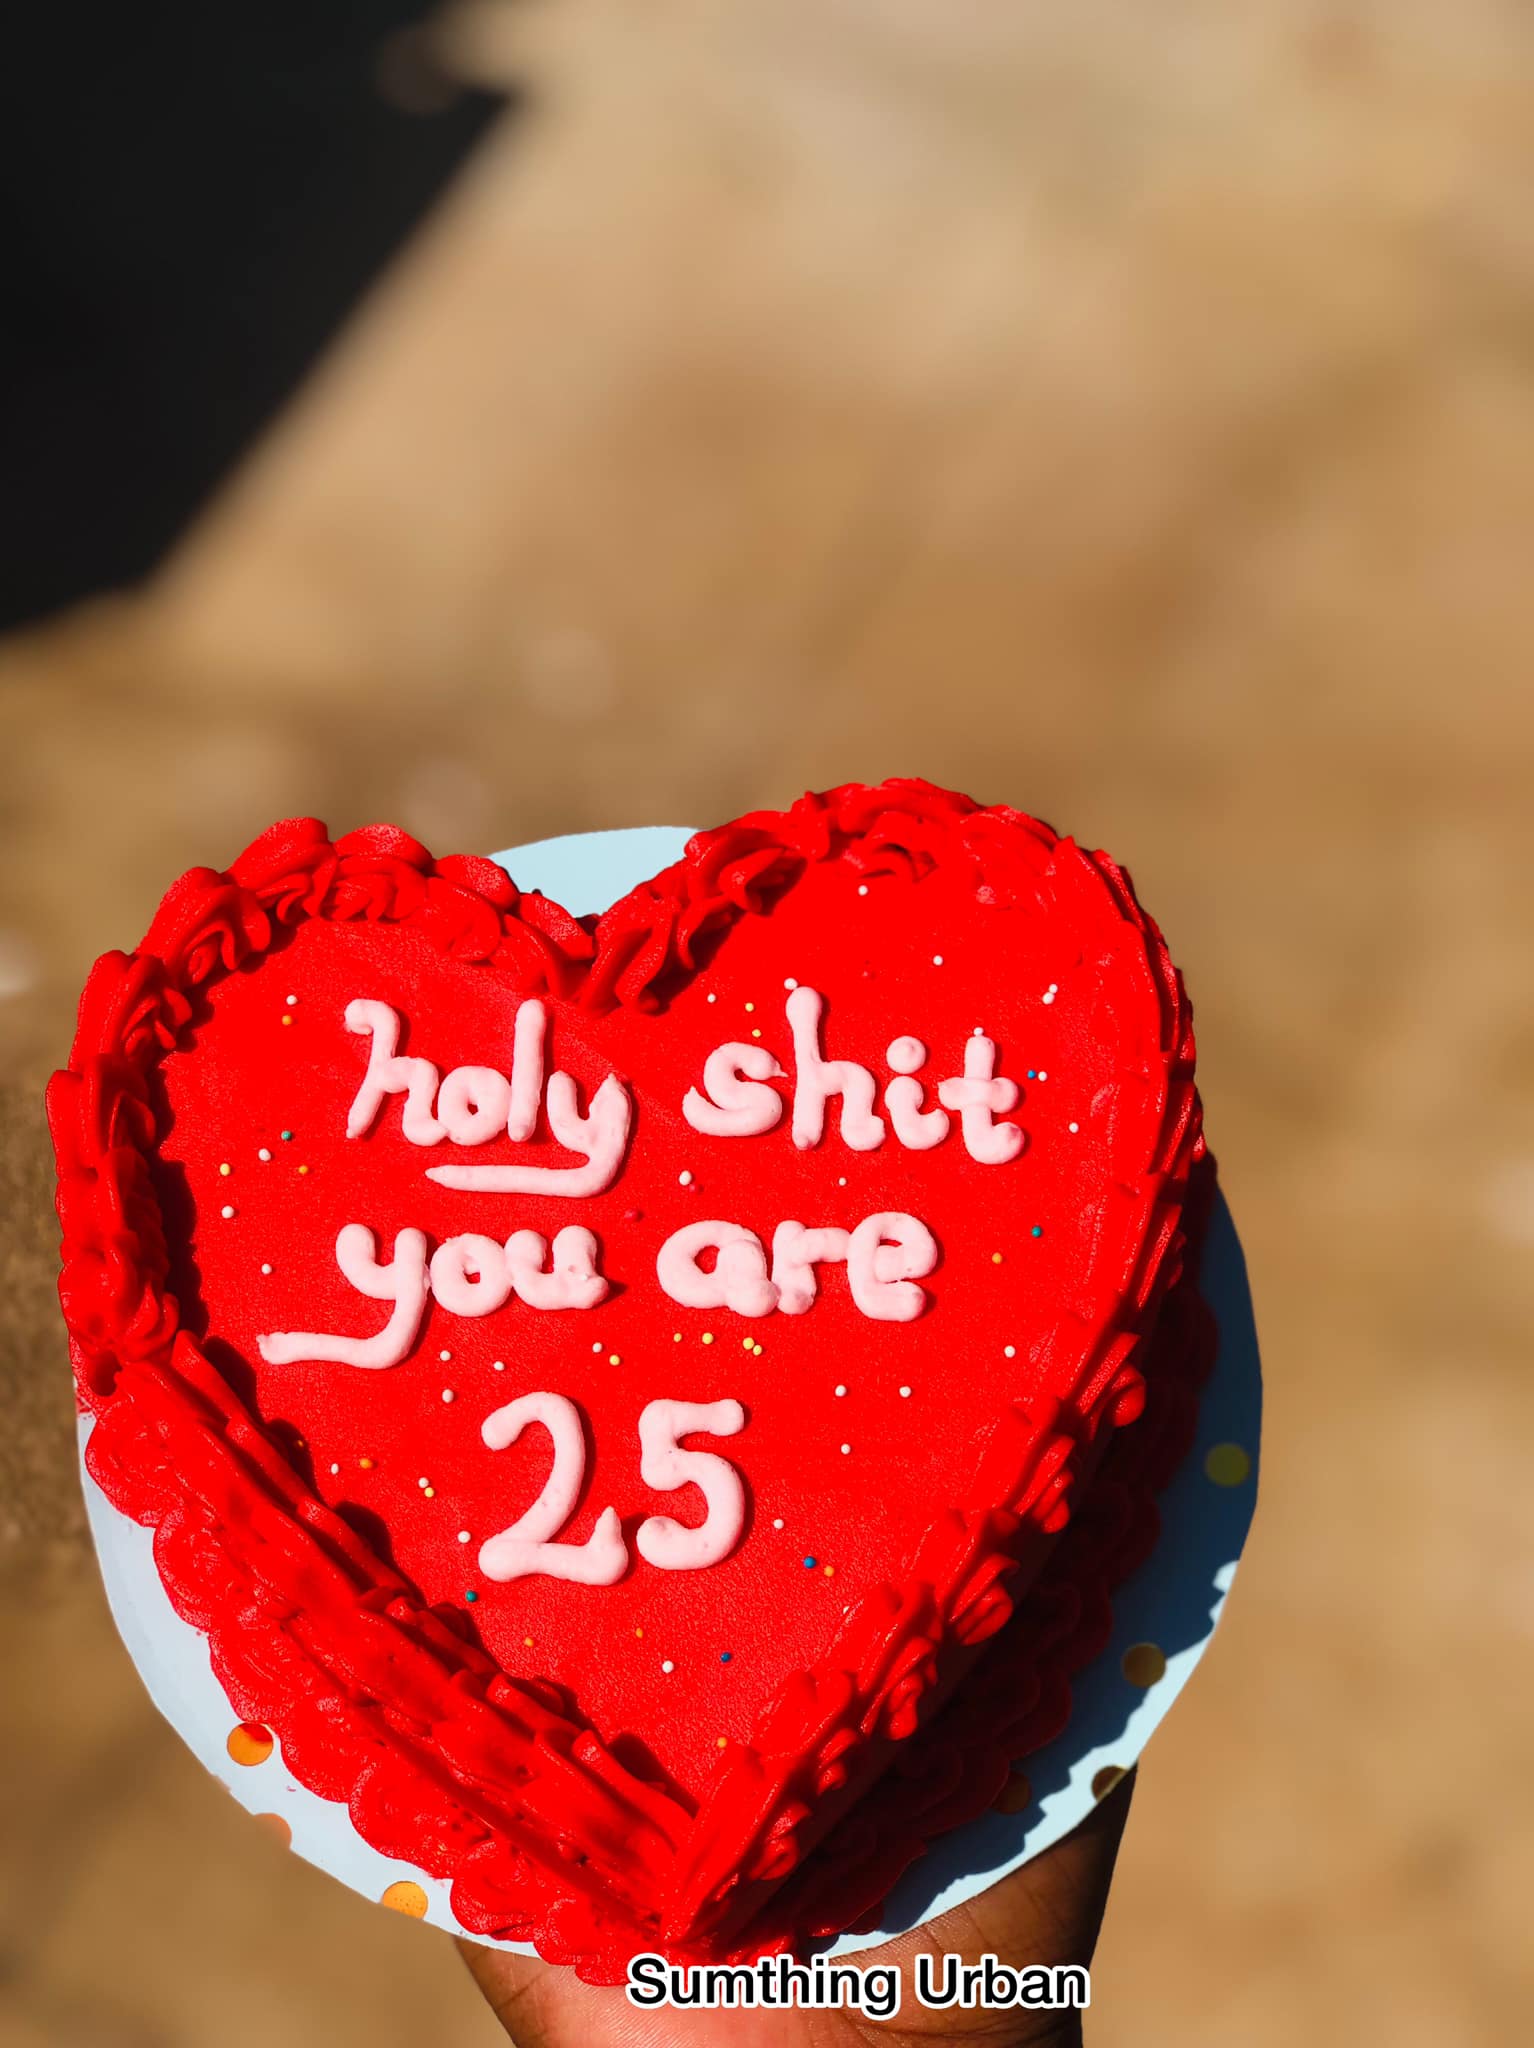 holy shit
you are
25
Sumthing Urban